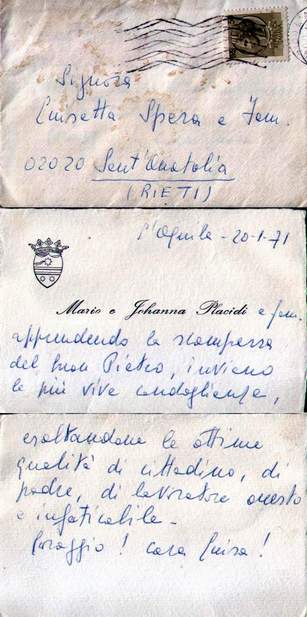 Signora
Luisetta Spera e fam.
02020 Sant'Anatolia
(RIETI)
L'Aquila - 20-1-71
Mario e Johanna Placidi e fam.
apprendendo la scomparsa
del buon Pietro, inviano
le più vive condoglianze,
esaltandone le ottime
qualità di cittadino, di
padre, di lavoratore onesto
e infaticabile -
Coraggio! cara Luisa!